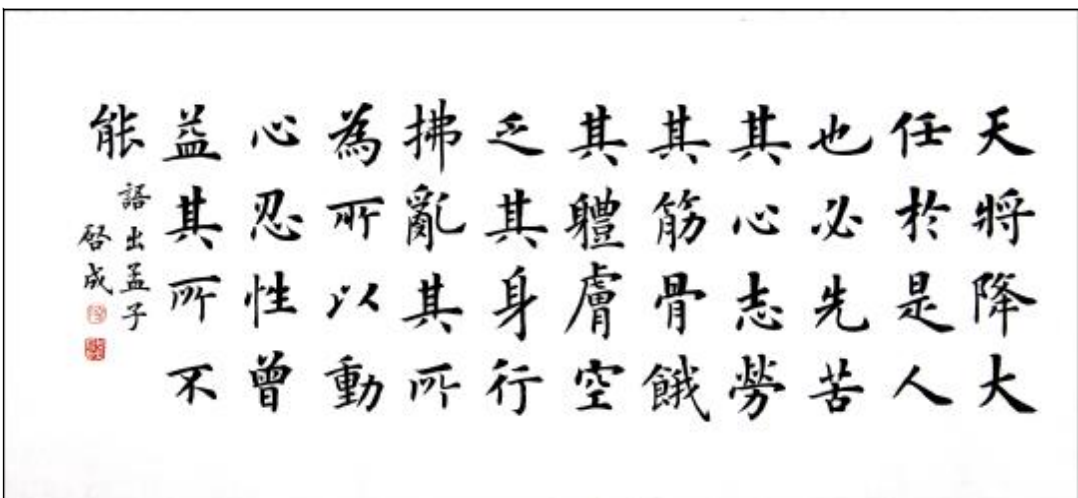 天將降大
任於是人
也必先苦
其心志勞
其筋骨餓
其軆膚空
乏其身行
拂亂其所
為所以動
心忍性曾
益其所不
能
語出孟子
啓成